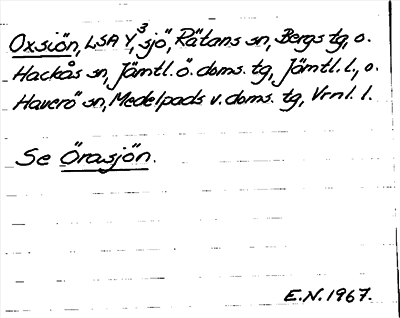 Oxsjön, LSA Y³, sjö, Rätans sn, Bergs tg, o.
Hackås sn, Jämtl. ö. doms. tg, Jämtl. l., o.
Haverö sn, Medelpads v. doms. tg, Vrnl. l.
Se Örasjön.
E.N. 1967.